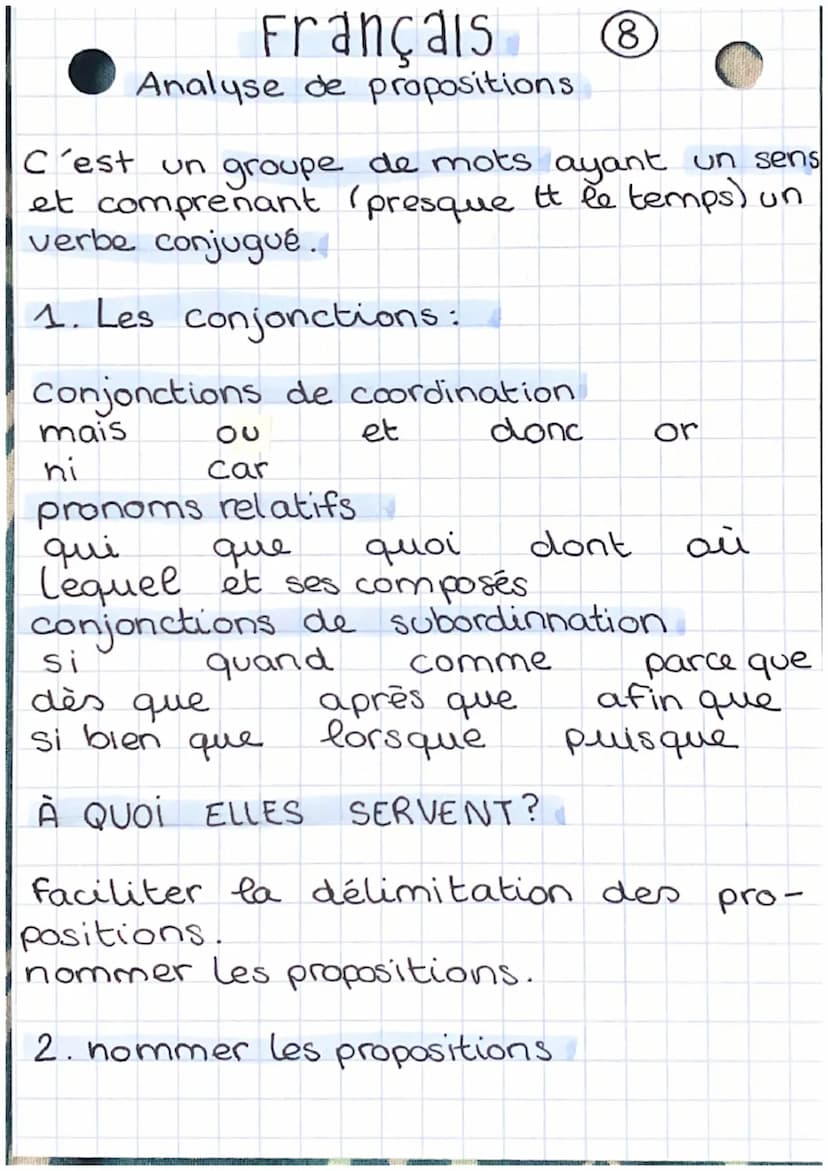 Français 8
Analyse de propositions
C'est un groupe de mots ayant un sens
et comprenant (presque tt le temps) un
verbe conjugué.
1. Les conjonctions :
conjonctions de coordination
mais ou et donc or
ni car
pronoms relatifs
qui que quoi dont où
lequel et ses composés
conjonctions de subordinnation
si quand comme parce que
dès que après que afin que
si bien que lorsque puisque
À QUOi ELLES SERVENT?
faciliter la délimitation des pro-
positions.
nommer les propositions.
2. nommer les propositions